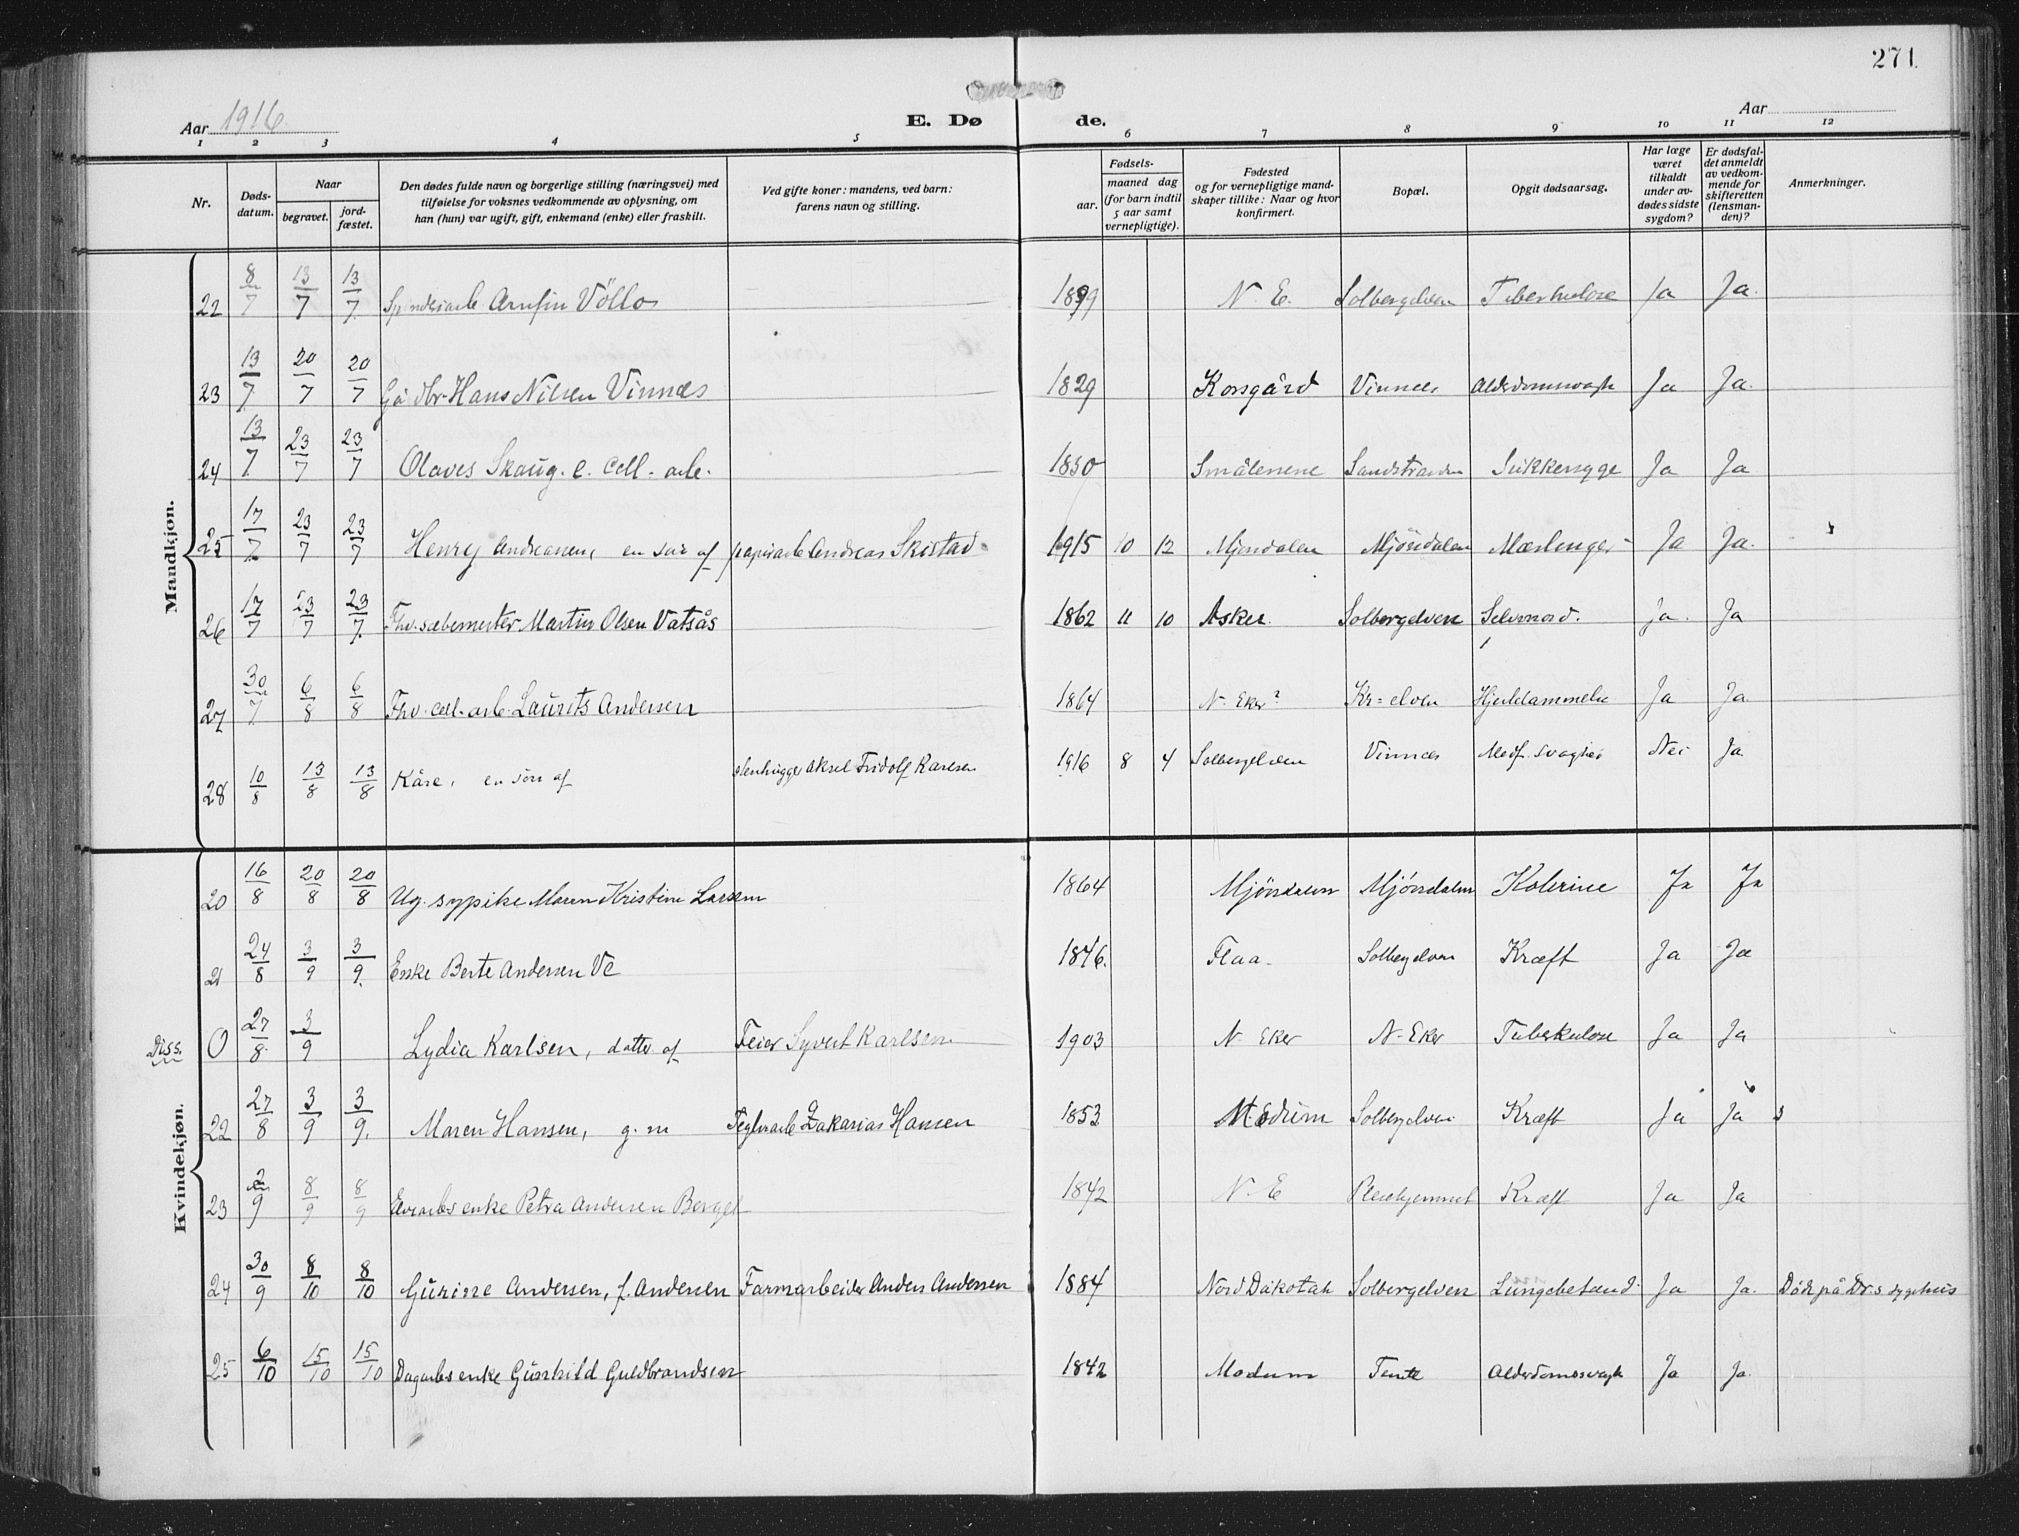 271.
Aar 1916
E. Dø de.
Aar
1 2 3 4 5 6 7 8 9 10 11 12
Nr.
Døds-
datum.
Naar
begravet.
jord-
fæstet.
Den dødes fulde navn og borgerlige stilling (næringsvei) med
tilføielse for voksnes vedkommende av oplysning, om
han (hun) var ugift, gift, enkemand (enke) eller fraskilt.
Ved gifte koner: mandens, ved barn:
farens navn og stilling.
Fødsels-
aar.
maaned dag
(for barn indtil
5 aar samt
vernepligtige).
Fødested
og for vernepligtige mand-
skaper tillike: Naar og hvor
konfirmert.
Bopæl.
Opgit dødsaarsag.
Har læge
været
tilkaldt
under av-
dødes sidste
sygdom?
Er dødsfal-
det anmeldt
av vedkom-
mende for
skifteretten
(lensman-
den)?
Anmerkninger.
Mandkjøn.
22 8/7 13/7 13/7 Arnfin Völlo 1899 N. E. Solbergelven Tuberkulose Ja Ja.
23 13/7 20/7 20/7 Gådbr. Hans Nilsen Vinnæs 1829 Korsgård Vinnes Alderdomsvagh Ja Ja.
24 13/7 23/7 23/7 Olaves Skaug. e. cell. arb. 1830 Smålenene Sandstranden Sukkersyge Ja Ja
25 17/7 23/7 23/7 Henry Andreasen, en søn af papirarb Andreas Skistad 1915 10 12 Mjøndalen Mjöndalen Mæslinger Ja Ja.
26 17/7 23/7 23/7 Fhv. sæbemester Martin Olsen Vatsås 1862 11 10 Asker. Solbergelven Selvmord. ja. Ja
27 30/7 6/8 6/8 Fhv. cell. arb. Laurits Andersen 1864 N. Eker? Kr=elven Ja Ja
28 10/8 13/8 13/8 Kåre, en sön af stenhugger Aksel Fridolf Karlsen 1916 8 4 Solbergelven Vinnæs Medf. svaghed Nei Ja
Kvindekjøn.
20 16/8 20/8 20/8 Ug. sypike Maren Kristine Larsen 1864 Mjöndalen Mjöndalen Kolerine Ja Ja
21 24/8 3/9 3/9. Enke Berte Andersen Ve 1846. Flaa. Solbergelven Kræft Ja Ja
Diss. 0 27/8. 3/9 Lydia Karlsen, datter af Feier Syvert Karlsen 1903 N. Eker N. Eker Tuberkulose Ja Ja
22 27/8 3/9 3/9. Maren Hansen, g. m Teglv.arb Zakarias Hansen 1853 Modum Solbergelven Kræft Ja Ja
23 2/9 8/9 8/9 enke Petra Andersen Berget 1842 N. E Pleiehjemmet Kræft Ja Ja
24 30/9 8/10 8/10 Gurine Andersen, f. Andersen Farmarbeider Anders Andersen 1884 Nord Dakotah Solbergelven Lungebetænd. Ja Ja. Död på Dr.s sygehus
25 6/10 15/10 15/10 Dagarbs enke Gunhild Guldbrandsen 1842 Modum Tente Alderdomssvagh Ja Ja.